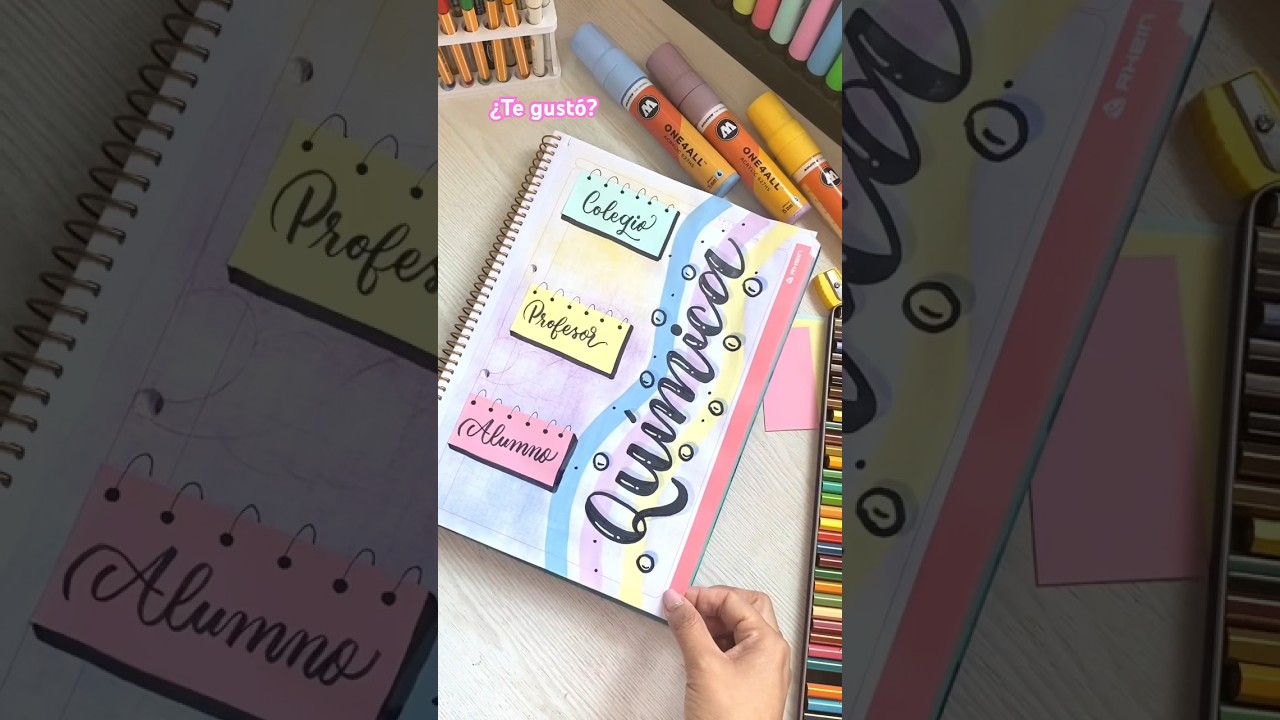 ¿Te gustó?
Colegio
Profesor
Alumno
Química
RHEIN
ONE4ALL
ONE4ALL
Profes
Alumno
RHEIN